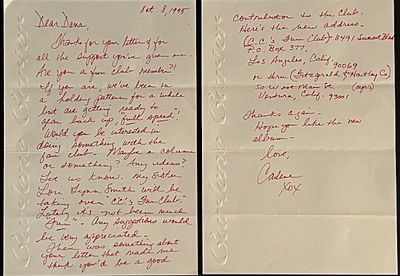 Oct. 8, 1995
Dear Dana,
Thanks for your letter & for
all the support you've given me.
Are you a fan club member?!
If you are, we've been in
a "holding pattern" for a while
but are getting ready to
gear back up, full speed!
Would you be interested in
doing something with the
fan club. Maybe a column
or something? Any ideas?
Let us know. My sister
Lori Lynn Smith will be
taking over "C.C.'s Fan Club."
Lately it's not been much
"Fun" - Any suggestions would
be very appreciated.
There was something about
your letter that made me
think you'd be a good
contributor to the Club.
Here's the new address -
(C.C.'s Fan Club) 8491 Sunset Blvd
P.O. Box 377,
Los Angeles, Calif.
90069
or thru (Fitzgerald & Hartley Co)
50 W. Main St.
Ventura, Calif. 93001
Thanks again -
Hope you like the new
album -
Love,
Carlene
XOX